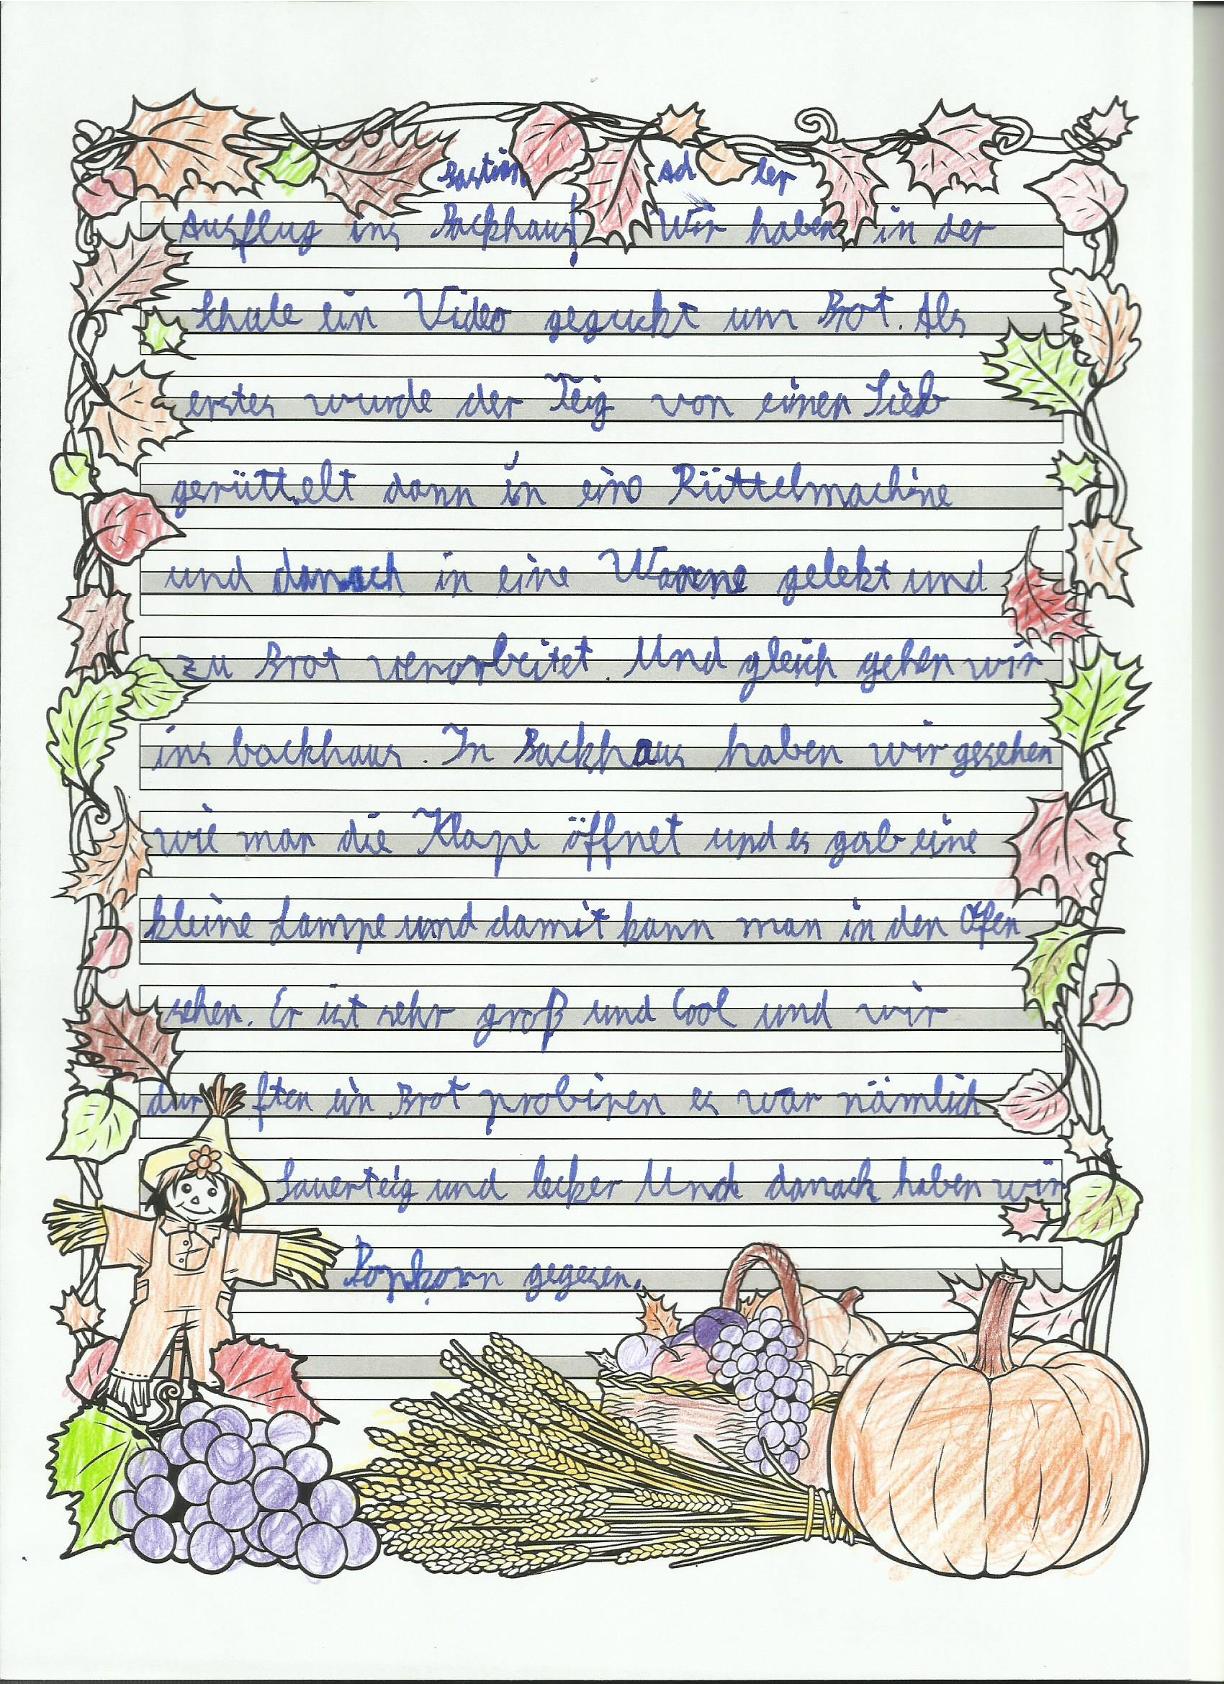 Bastian Ad ler
Ausflug ins Backhaus! Wir haben in der
Schule ein Video geguckt um Brot. Als
erstes wurde der Teig von einen Sieb
gerüttelt dann in eine Rüttelmachine
und danach in eine Wanne gelekt und
zu Brot verarbeitet. Und gleich gehen wir
ins backhaus. In Backhaus haben wir gesehen
wie man die Klape öffnet und es gab eine
kleine Lampe und damit kann man in den Ofen
sehen. Er ist sehr groß und Cool und wir
dur ften ein Brot probiren es war nämlich
Sauerteig und lecker Und danach haben wir
Popkorn gegesen.